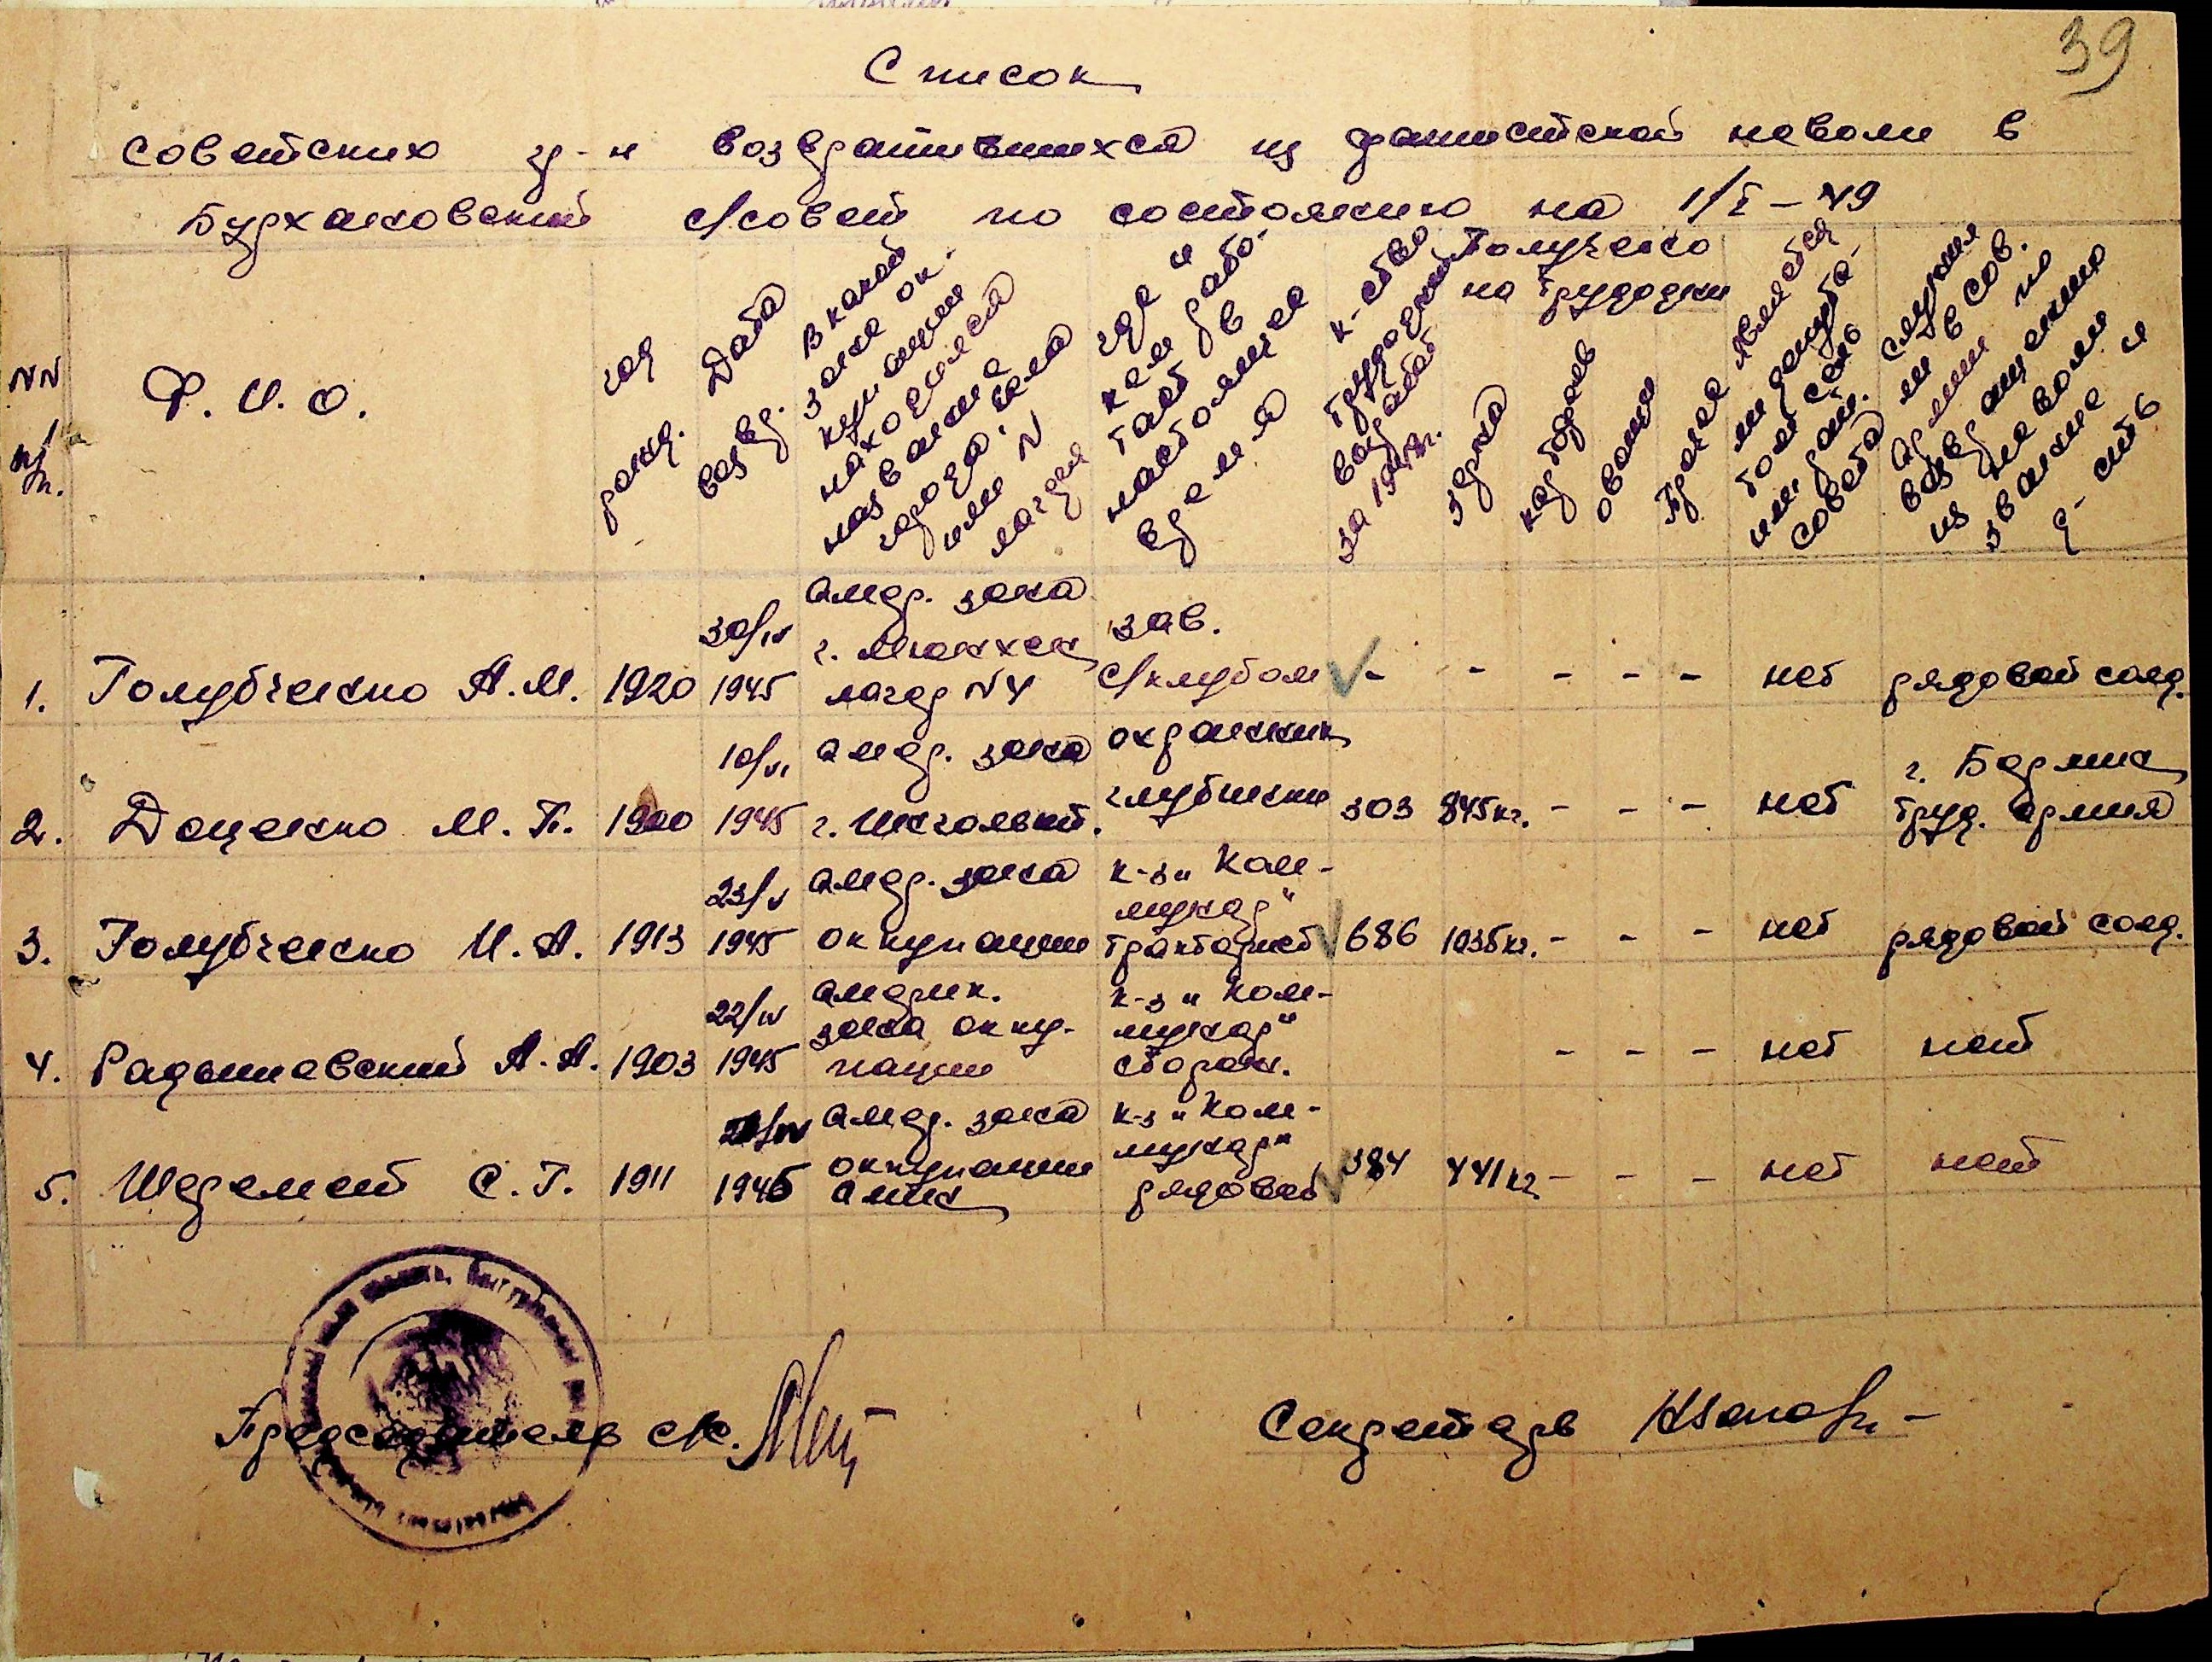 39
Список
советских гр-н возвратившихся из фашистской неволи в
Бурхановский с/совет по состоянию на 1/I-49
NN п/п.
Ф. И. О.
год рожд.
Дата возвр.
В какой зоне ок-
купации
находился
название
города, села
или N
лагеря
где и
кем рабо-
тает в
настоящее
время
к-ство
трудодней
выработ
за 1948г.
Получено
на трудодни
зерна
картофеля
овощи
Прочее
Является
ли депута-
том сель
или рай.
совета
служил
ли в Сов.
Армии по
возвращению
из неволи
звание и
д-сть
1. Голубченко А.М. 1920 30/IV 1945 амер. зона г. Мюнхен лагер N4 зав. с/клубом - - - - - нет рядовой солд.
2. Доценко М. П. 1900 10/VI 1945 амер. зона г. Инголвшт. охранник глубинки 303 845кг. - - - нет г. Берлин труд. армия
3. Голубченко И. А. 1913 23/V 1945 амер. зона оккупации к-з „Ком-мунар" тракторист 686 1035кг. - - - нет рядовой солд.
4. Радышевский А. А. 1903 22/IV 1945 америк. зона окку-пации к-з „Ком-мунар" сторож. - - - нет нет
5. Шеремет С. Г. 1911 1945 амер. зона оккупации к-з „Ком-мунар" рядовой 384 441кг - - - нет нет
Председатель с/с. Секретарь